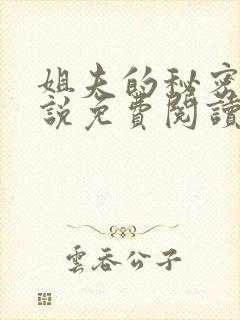 姐夫的秘密
說免費閱讀
雲吞公子